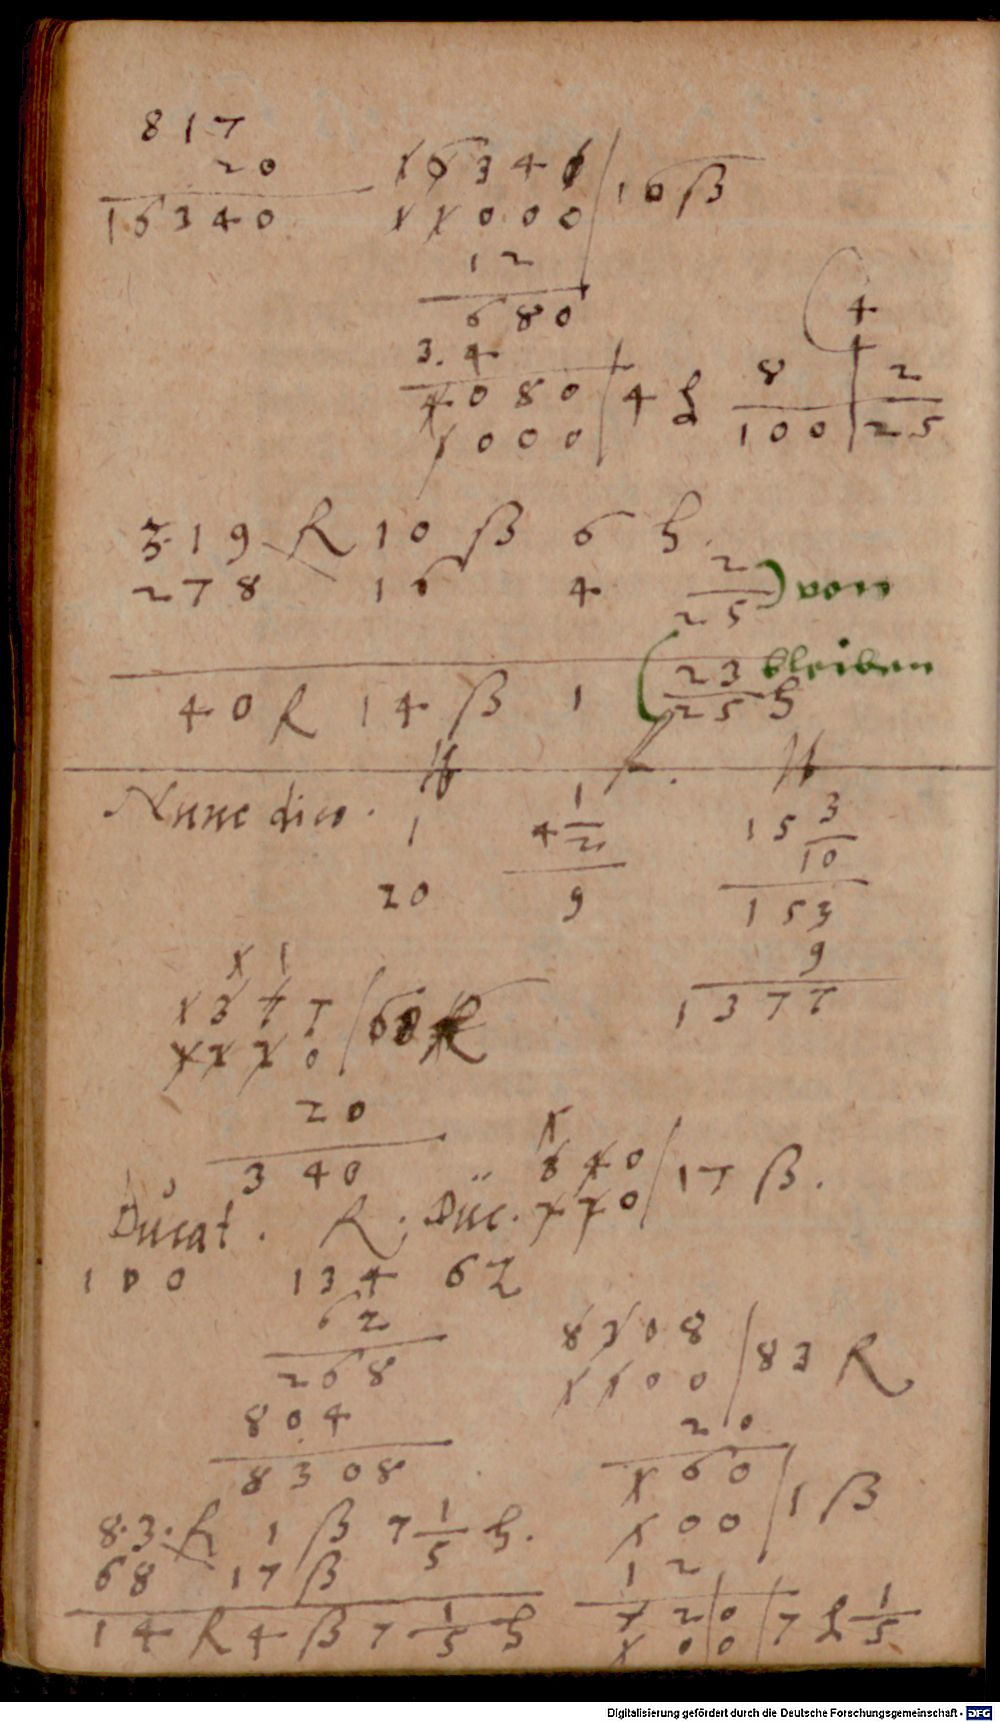 817
20
16340
16340 | 16 ß
11000
12
680
3.4
4080 | 4 h
1000
(4
8 | 2
100 | 25
319 R 10 ß 6 h.
278 16 4 2/25) von
40 R 14 ß 1 (23/25 h bleiben
Nunc dico.
1 4 1/2 15 3/10
20 9 153
9
1377
1 1
1377 | 68 R
2220
20
340
1
340 | 17 ß.
220
Ducat. R. Duc.
100 134 62
62
268
804
8308
8308 | 83 R
1100
20
160 | 1 ß
100
12
720 | 7 h 1/5
100
83. R 1 ß 7 1/5 h.
68 17 ß
14 R 4 ß 7 1/5 h
Digitalisierung gefördert durch die Deutsche Forschungsgemeinschaft - DFG